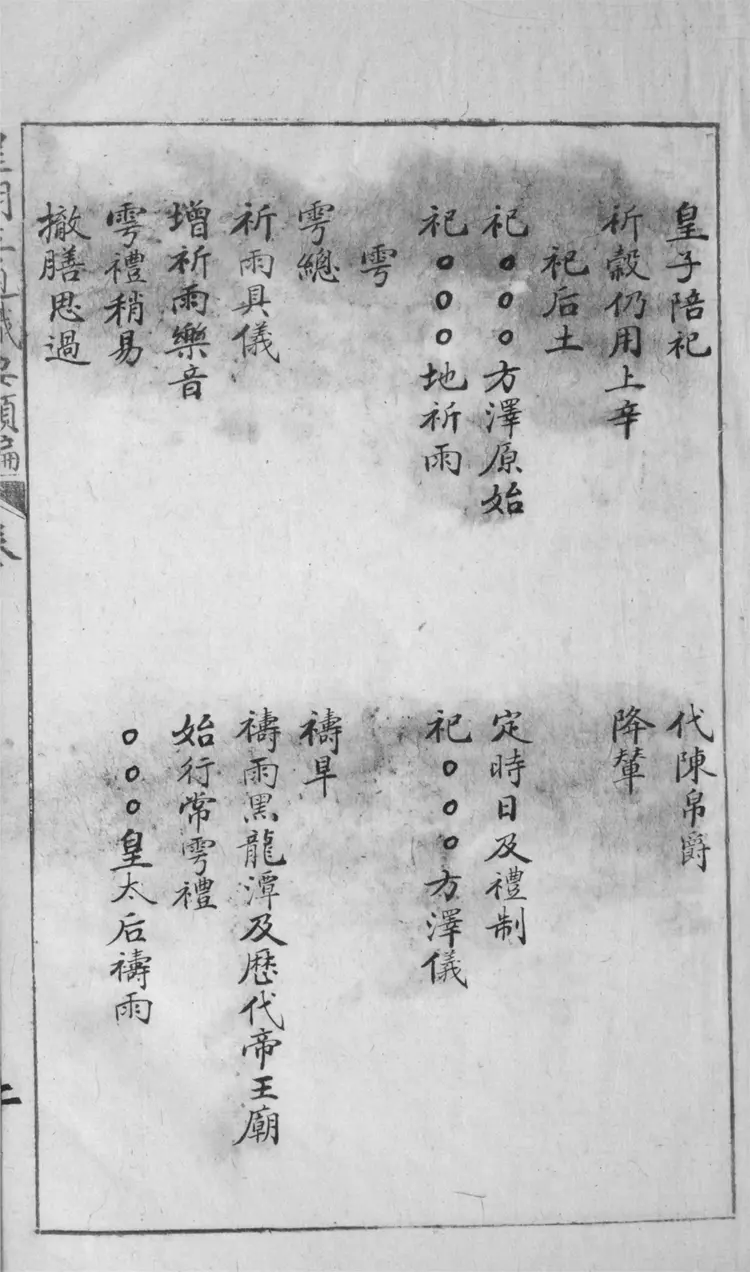 皇子陪祀　代陳帛爵
祈穀仍用上辛　降輦
祀后土
祀○○○方澤原始　定時日及禮制
祀○○○地祈雨　祀○○○方澤儀
雩
雩總　禱旱
祈雨具儀　禱雨黑龍潭及歴代帝王廟
增祈雨樂音　始行常雩禮
雩禮稍易　○○○皇太后禱雨
撤膳思過